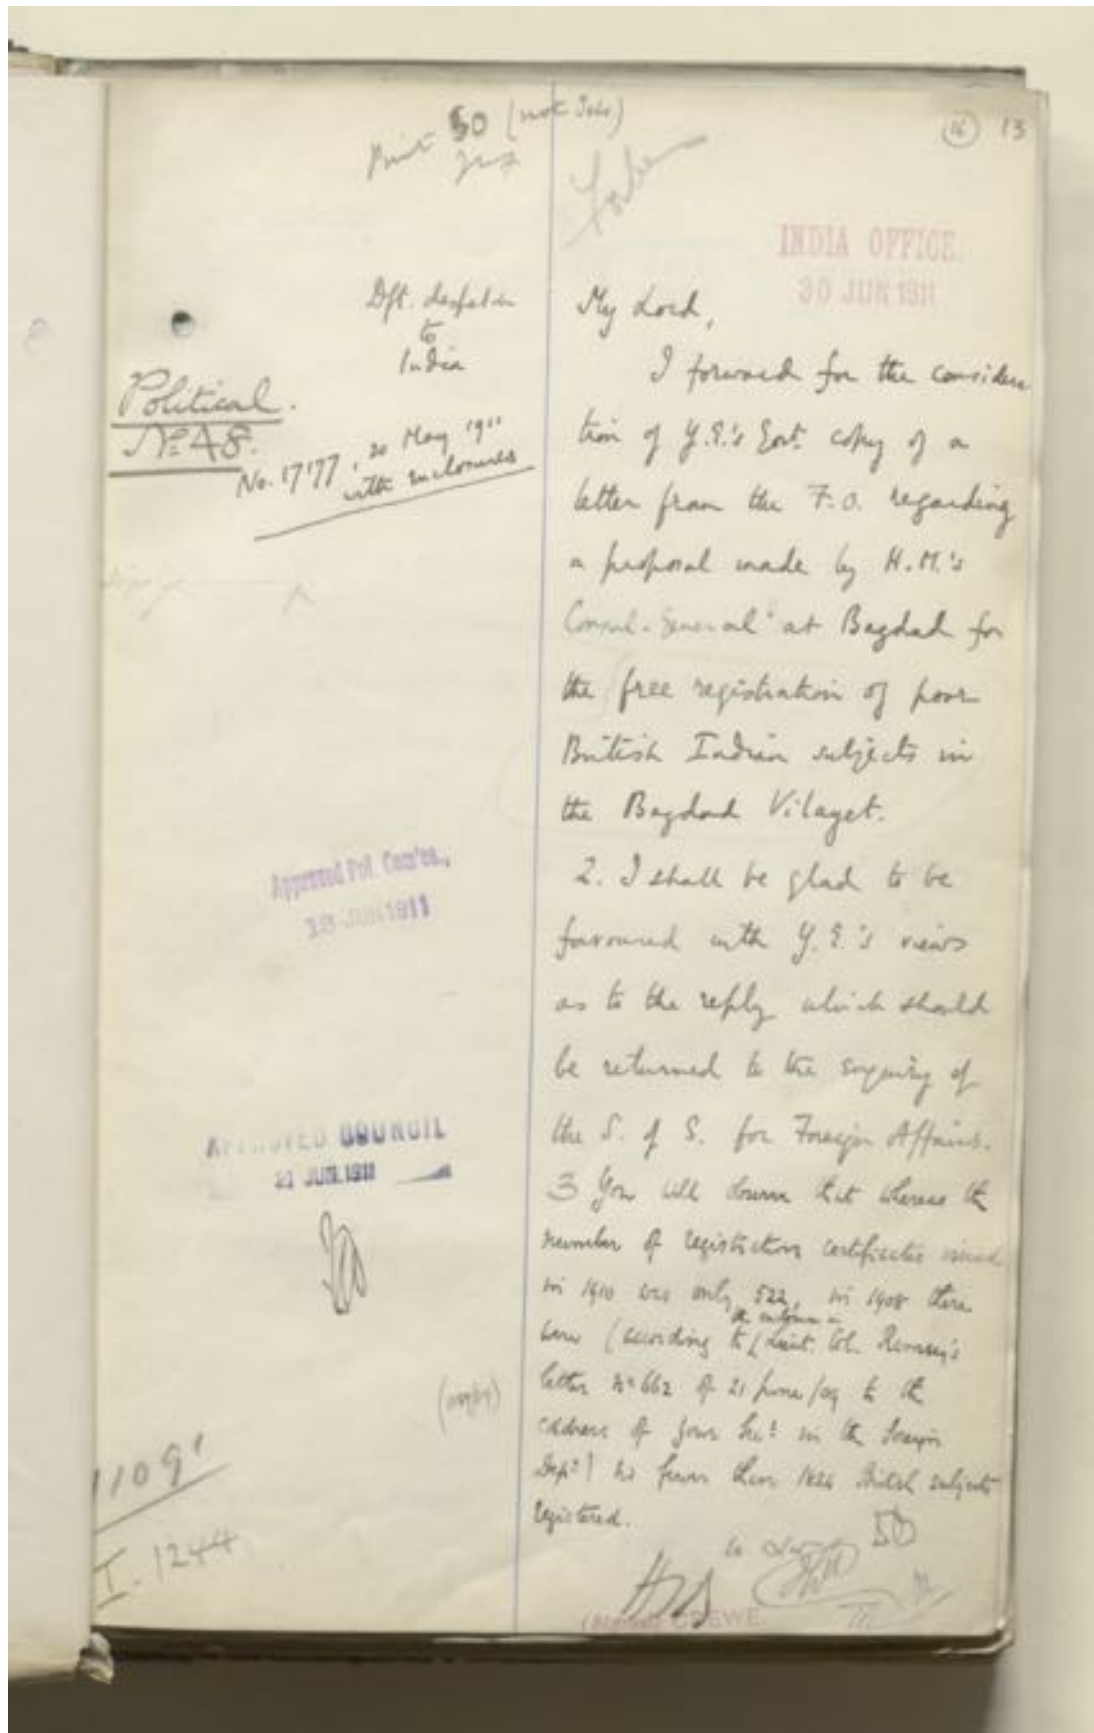 Print 50 (not Secs)
16 13
INDIA OFFICE.
30 JUN 1911
Dft. despatch
to
India
Political.
No. 48.
No. 17177, 20 May 1911
with enclosures
My Lord,
I forward for the considera
tion of Y.E.'s Govt. copy of a
letter from the F.O. regarding
a proposal made by H.M.'s
Consul-General at Bagdad for
the free registration of poor
British Indian subjects in
the Bagdad Vilayet.
2. I shall be glad to be
favoured with Y.E.'s views
as to the reply which should
be returned to the enquiry of
the S. of S. for Foreign Affairs.
3 You will observe that whereas the
number of registration certificates issued
in 1910 was only 522, in 1908 there
were (according to the enclosure in Lieut. Col. Ramsay's
letter No 662 of 21 June/09 to the
address of your Secy in the Foreign
Dept) no fewer than 1824 British subjects
registered.
Approved Pol. Com'tee.,
JUN 1911
APPROVED COUNCIL
21 JUN. 1911
1109
I. 1244
50
CREWE.